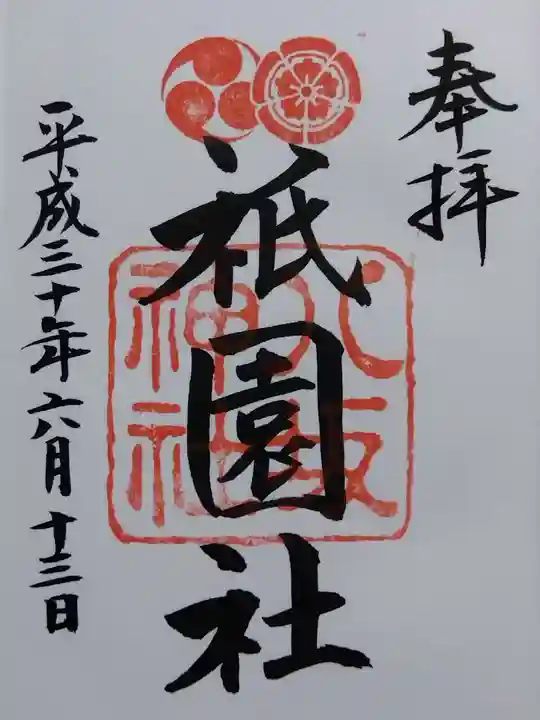 奉拝
祇園社
八坂神社
平成三十年六月十三日